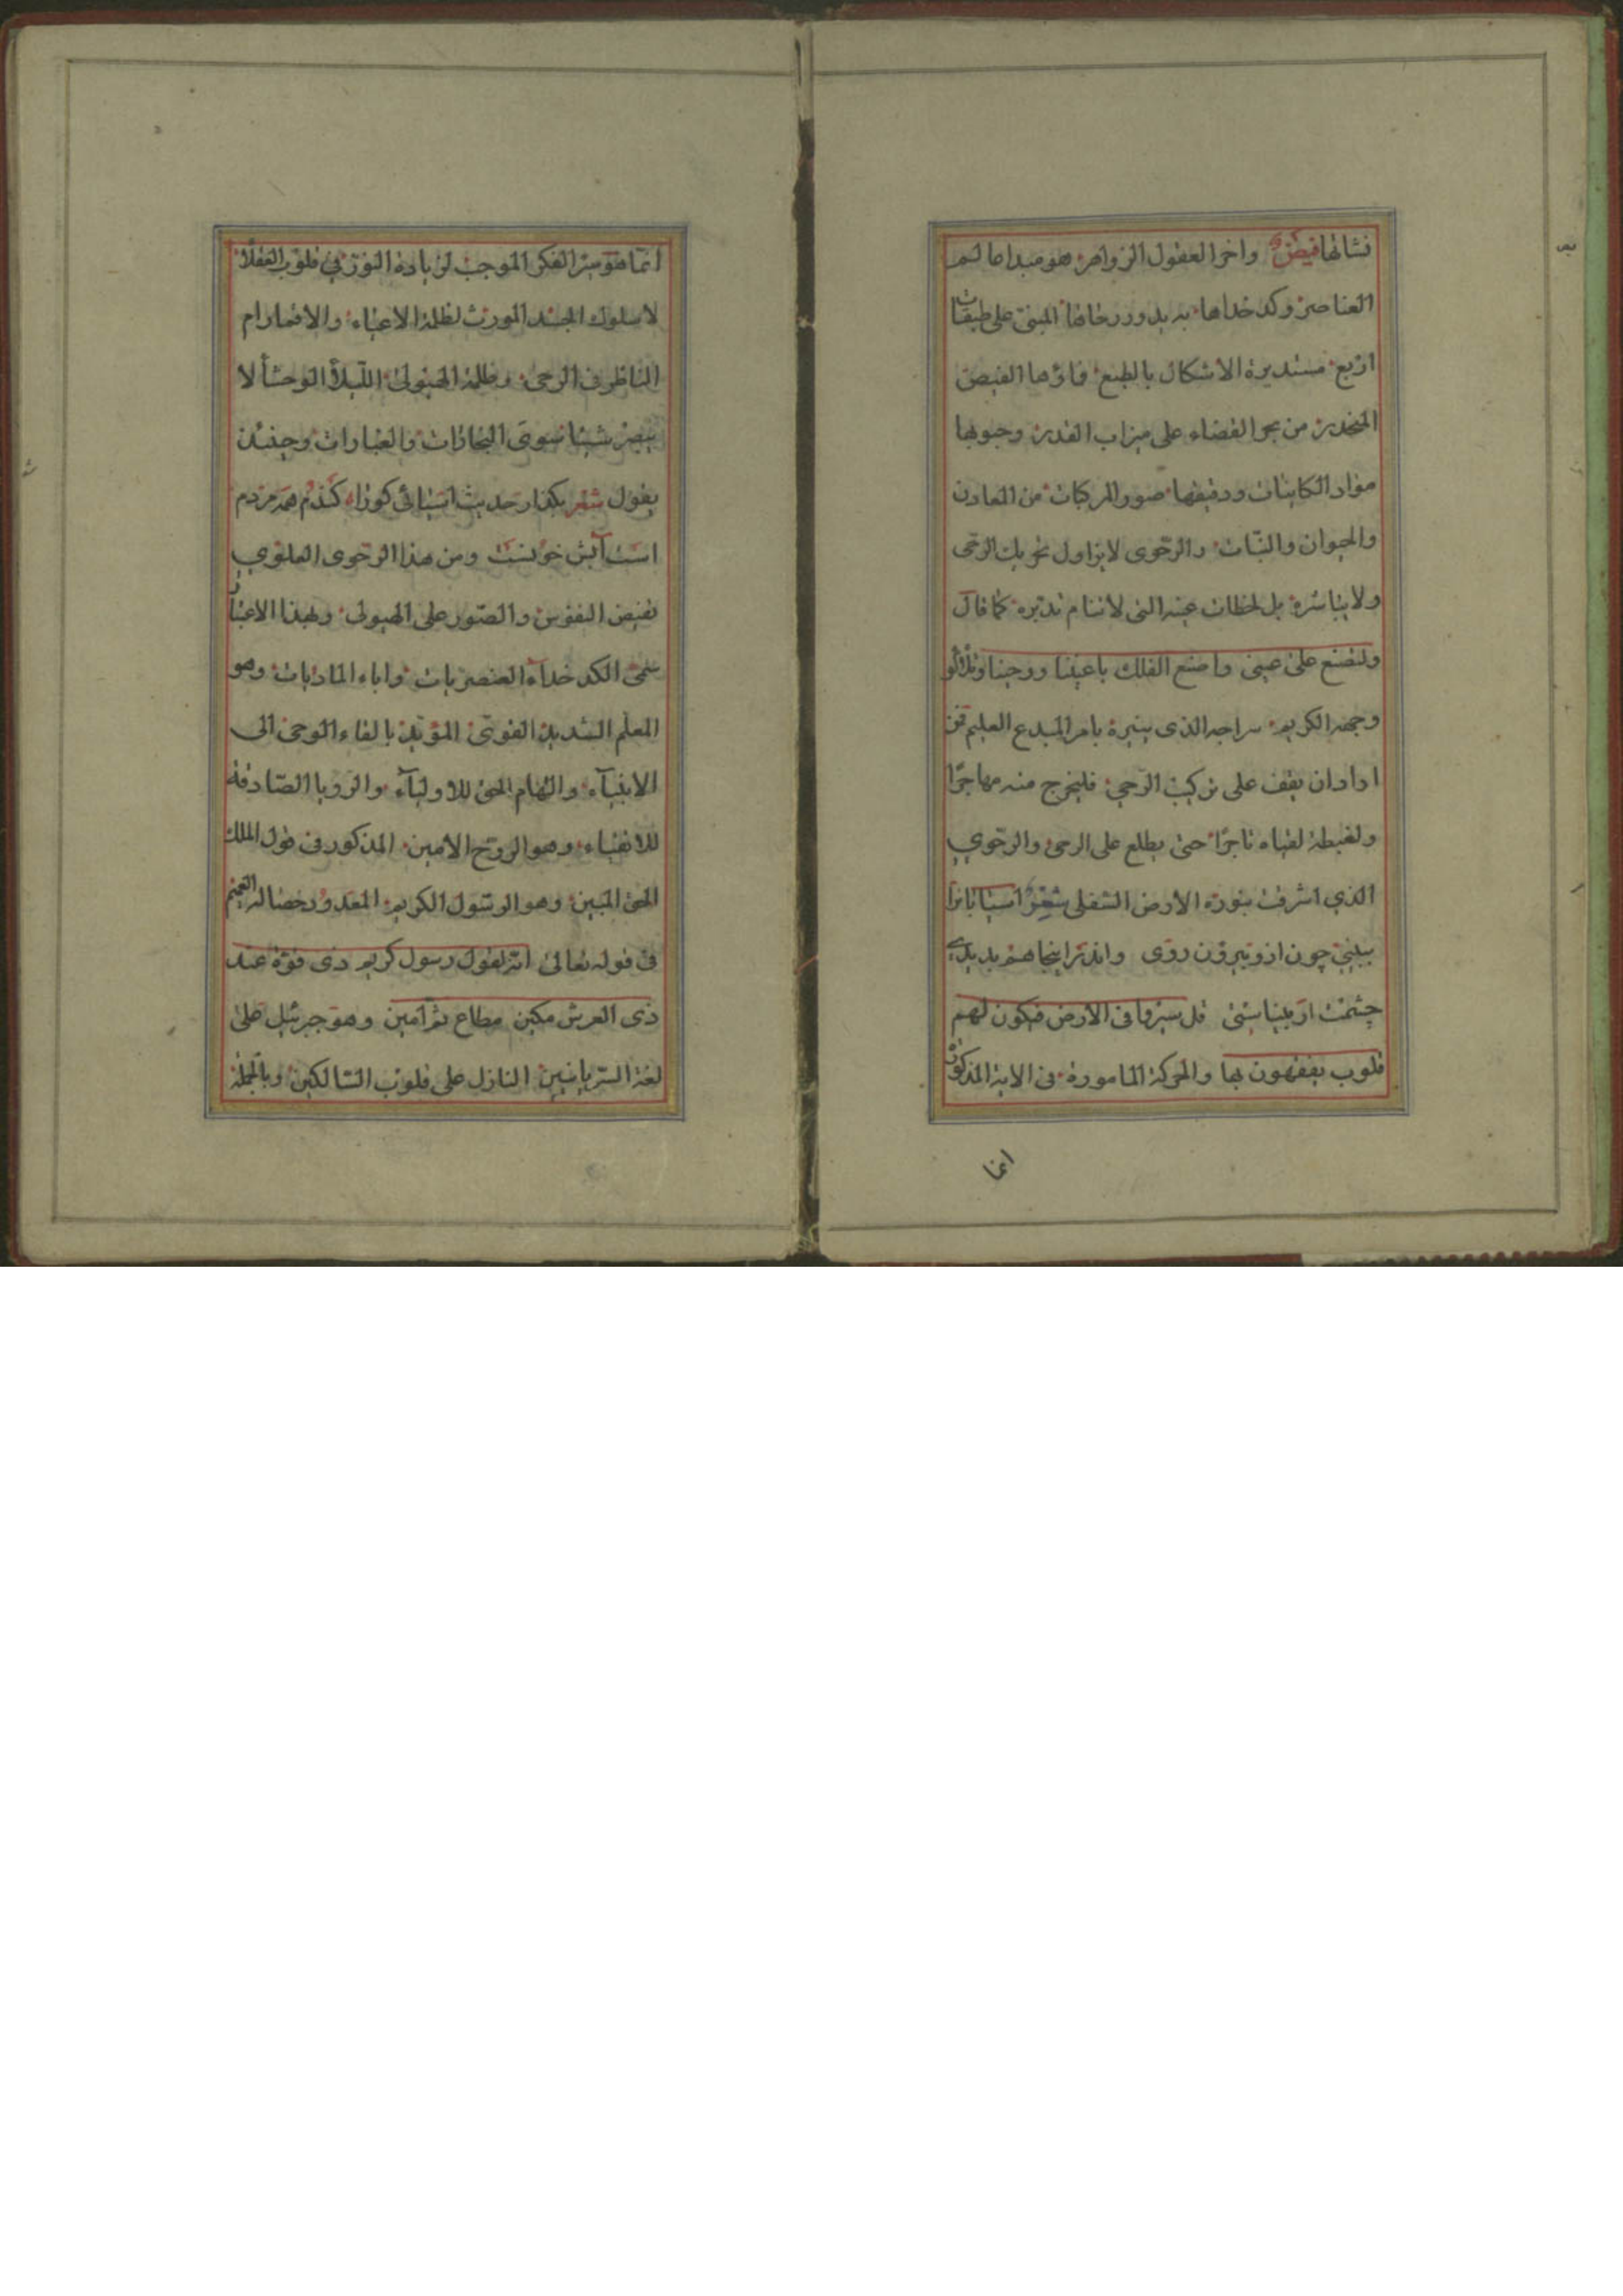 نشاتها فيض واخر العقول الزواهر هو مبدا عالم
العناصر وكدخداها به يدور رحاها المبنى على طبقات
اربع مستديرة الاشكال بالطبع فماؤها الفيض
المنحدر من بحر القضاء على ميزاب القدر وحبوبها
مواد الكاينات ودقيقها صور المركبات من المعادن
والحيوان والنبات والرحوى لا يزاول تحريك الرحى
ولا يباشره بل لحظات عينه التى لا تنام تدبره كما قال
ولتصنع على عينى واصنع الفلك باعيننا ووحينا وتلألؤ
وجهه الكريم سراجه الذى ينيره بامر المبدع العليم فمن
اراد ان يقف على تركيب الرحى فليخرج منه مهاجرا
ولغبطة لقياه تاجرا حتى يطلع على الرحى والرحوي
الذي اشرقت بنوره الارض السفلى شعر اسيابانرا
ببينى چون ازو بيرون روى واندر اينجا هم بديدى
چشمت ار بيناستى قل سيروا فى الارض فيكون لهم
قلوب يفقهون بها والحركة المامورة فى الاية المذكورة
انما
انما هو سير الفكر الموجب لزيادة النور في قلوب العقلاء
لا سلوك الجسد المورث لظلمة الاعياء والاقمار ام
الناظر فى الرحى وظلمة الهيولى الليلاء الوحشاء لا
يبصر شيئا سوى البخارات والغبارات وحينئذ
يقول شعر بگذار حديث اسيائى كورا گندم همه مردم
است آبش خونست ومن هذا الرحوى العلوي
تفيض النفوس والصور على الهيولى ولهذا الاعتبار
سمى الكدخداء العنصريات واباء الماديات وهو
المعلم الشديد القوى المؤيد بالقاء الوحى الى
الانبياء والهام الحق للاولياء والرويا الصادقة
للاتقياء وهو الروح الامين المذكور فى قول الملك
الحق المبين وهو الرسول الكريم المعدود خصاله العميم
فى قوله تعالى انه لقول رسول كريم ذى قوة عند
ذى العرش مكين مطاع ثم امين وهو جبرئيل على
لغة السريانيين النازل على قلوب السالكين وبالجملة